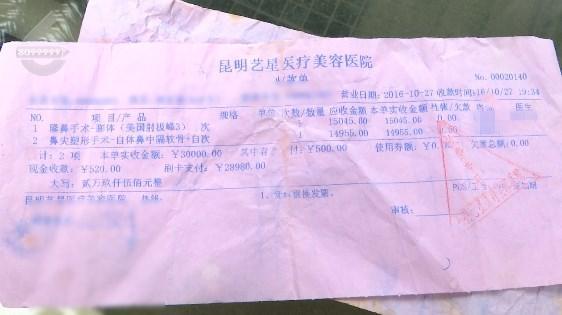 8099999
昆明艺星医疗美容医院
收款单
No. 00020140
营业日期:2016-10-27 收款时间:16/10/27 19:34
NO. 项目/产品 规格 单位 次数/数量 应收金额 本单实收金额 挂账/欠款 医生
1 隆鼻手术-膨体(美国射极峰3) 次 1 15045.00 15045.00 0.00
2 鼻尖塑形手术-自体鼻中隔软骨-自次 1 14955.00 14955.00 0.50
计:2 项 本单实收金额:¥30000.00 其中 付:¥500.00 使用券额:¥0.0 欠惠总额:0.00
现金收款:¥520.00 刷卡支付:¥28980.00
大写:贰万玖仟伍佰元整
昆明艺星医疗美容医院 1、凭 据换发票。
审核: